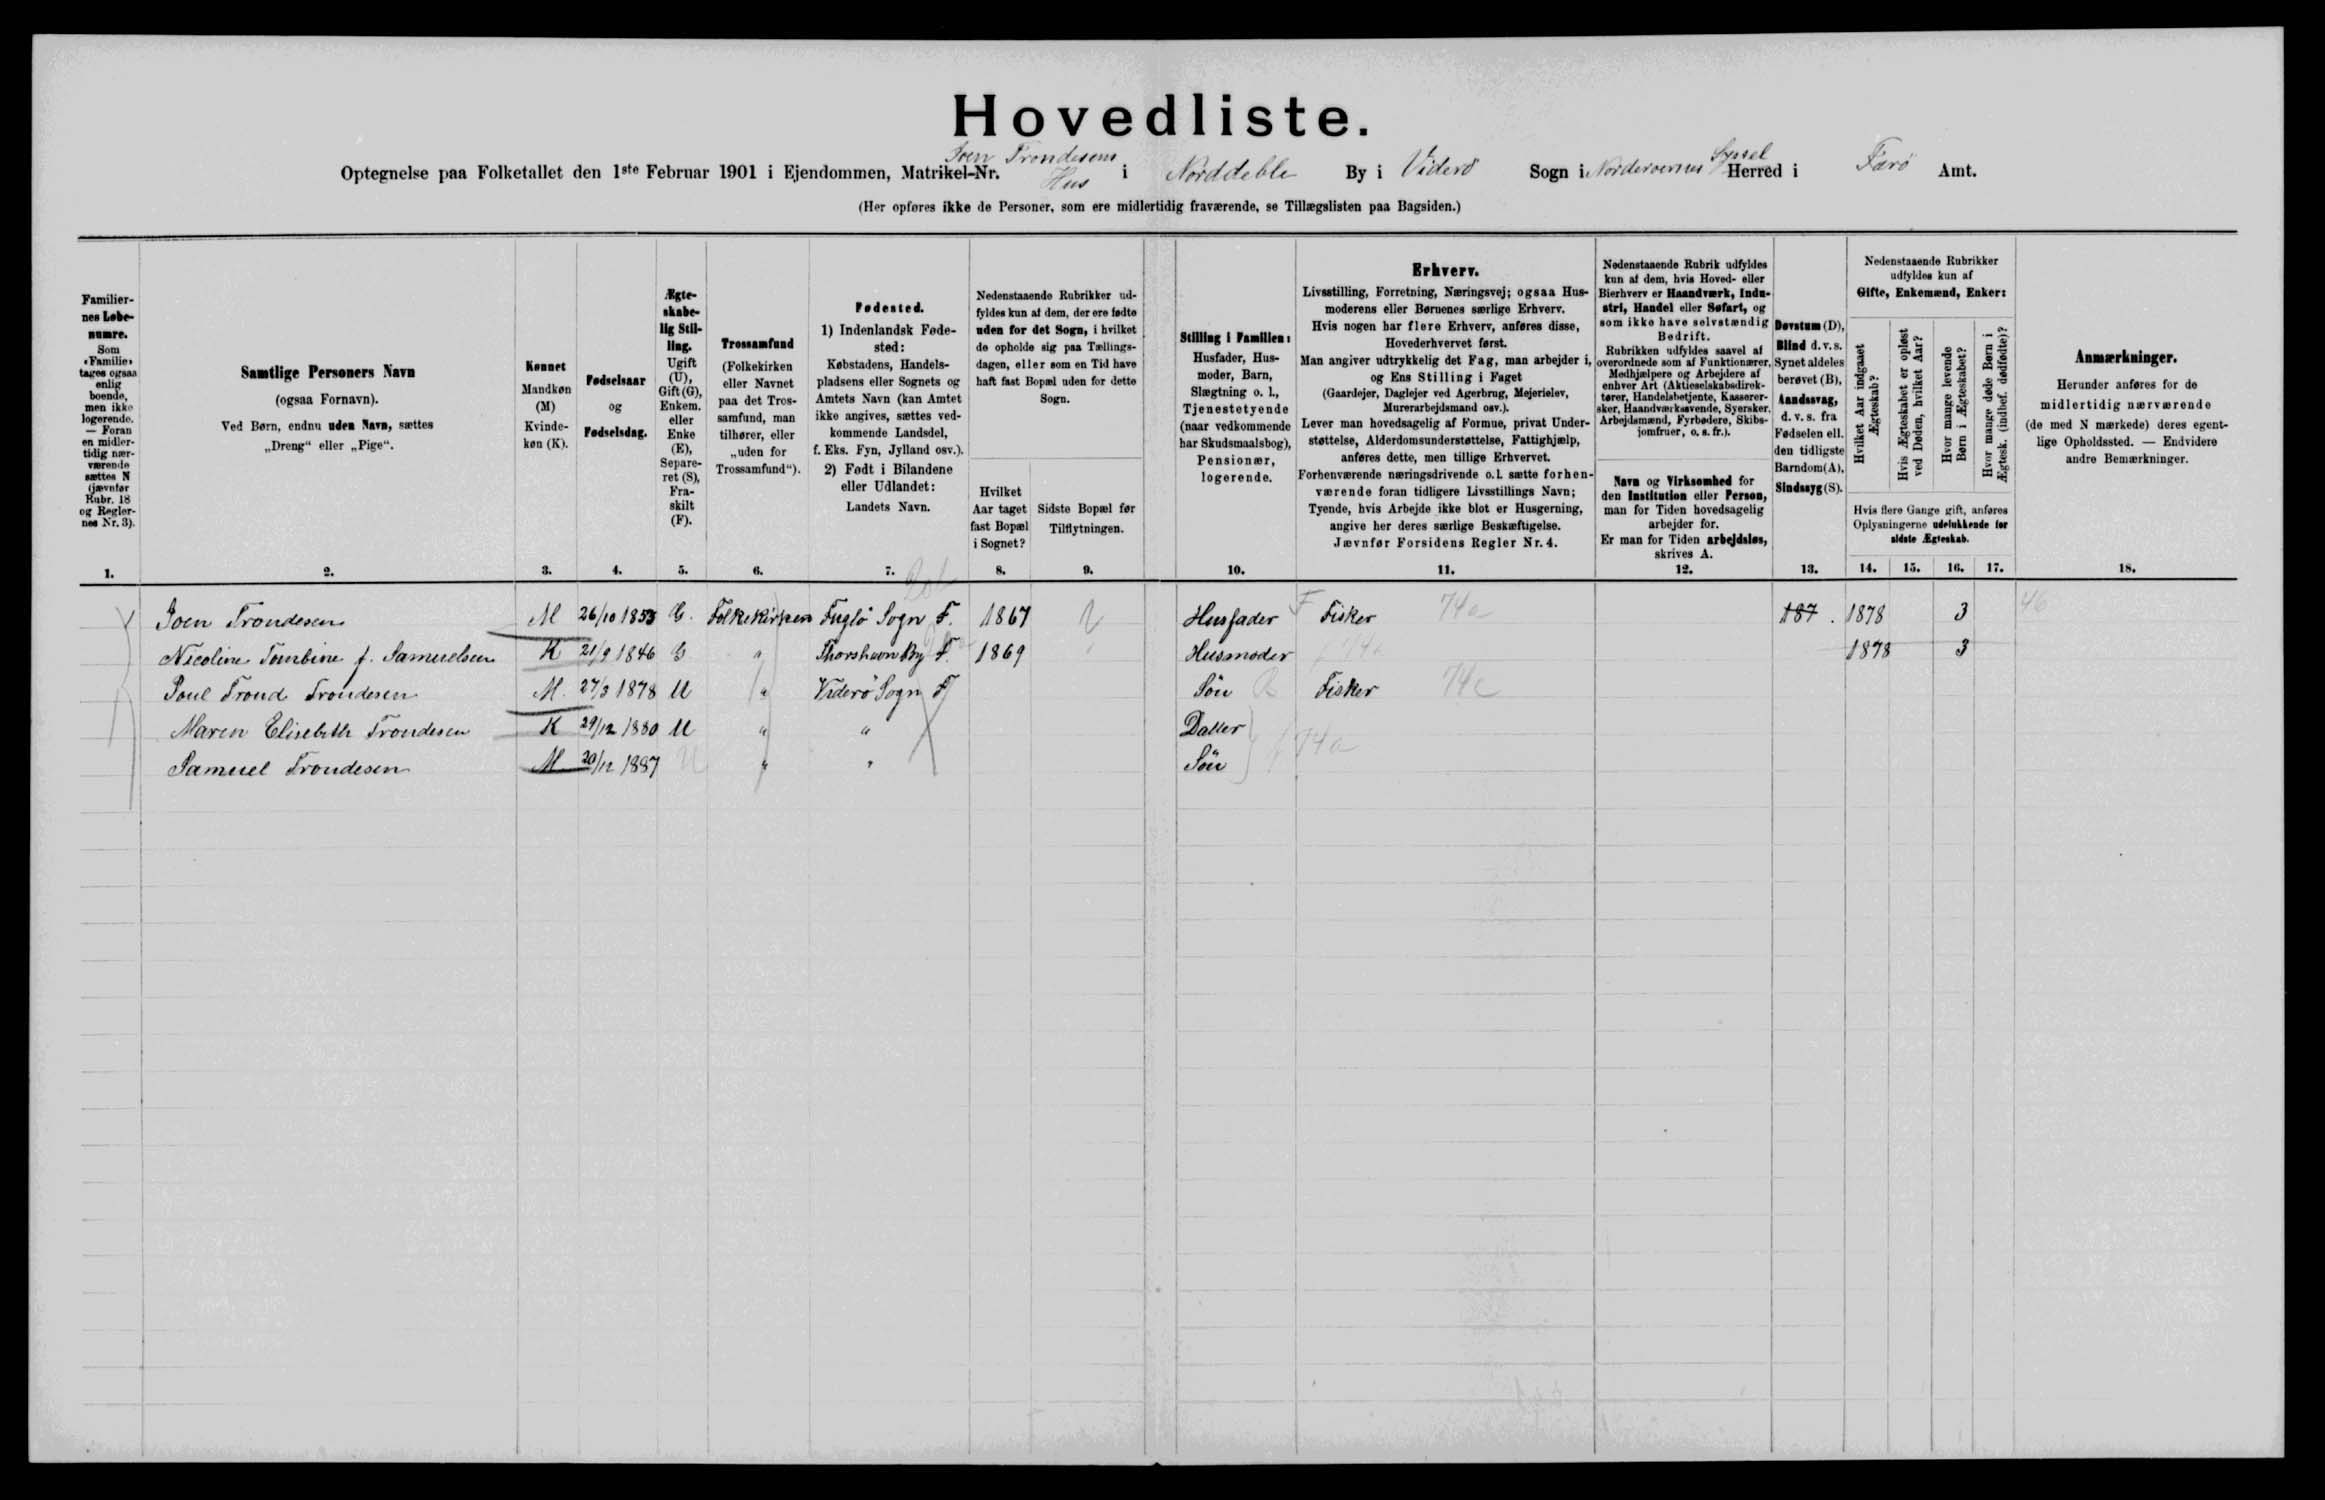 Hovedliste.
Optegnelse paa Folketallet den 1ste Februar 1901 i Ejendommen, Matrikel-Nr. Joen Trondesens Hus i Norddeble By i Viderö Sogn i Norderoernes Syssel Herred i Færö Amt.
(Her opføres ikke de Personer, som ere midlertidig fraværende, se Tillægslisten paa Bagsiden.)
Familiernes Løbenumre.
Som «Familie» tages ogsaa enlig boende, men ikke logerende. — Foran en midlertidig nærværende sættes N (jævnfør Rubr. 18 og Reglernes Nr. 3).
Samtlige Personers Navn
(ogsaa Fornavn).
Ved Børn, endnu uden Navn, sættes
„Dreng“ eller „Pige“.
Kønnet
Mandkøn (M)
Kvindekøn (K).
Fødselsaar
og
Fødselsdag.
Ægteskabelig Stilling.
Ugift (U), Gift (G), Enkem. eller Enke (E), Separeret (S), Fraskilt (F).
Trossamfund
(Folkekirken eller Navnet paa det Trossamfund, man tilhører, eller „uden for Trossamfund“).
Fødested.
1) Indenlandsk Fødested:
Købstadens, Handelspladsens eller Sognets og Amtets Navn (kan Amtet ikke angives, sættes vedkommende Landsdel, f. Eks. Fyn, Jylland osv.).
2) Født i Bilandene eller Udlandet:
Landets Navn.
Nedenstaaende Rubrikker udfyldes kun af dem, der ere fødte uden for det Sogn, i hvilket de opholde sig paa Tællingsdagen, eller som en Tid have haft fast Bopæl uden for dette Sogn.
Hvilket Aar taget fast Bopæl i Sognet?
Sidste Bopæl før Tilflytningen.
Stilling i Familien:
Husfader, Husmoder, Barn, Slægtning o. l., Tjenestetyende (naar vedkommende har Skudsmaalsbog), Pensionær, logerende.
Erhverv.
Livsstilling, Forretning, Næringsvej; ogsaa Husmoderens eller Børnenes særlige Erhverv.
Hvis nogen har flere Erhverv, anføres disse, Hovederhvervet først.
Man angiver udtrykkelig det Fag, man arbejder i, og Ens Stilling i Faget
(Gaardejer, Daglejer ved Agerbrug, Mejerielev, Murerarbejdsmand osv.).
Lever man hovedsagelig af Formue, privat Understøttelse, Alderdomsunderstøttelse, Fattighjælp, anføres dette, men tillige Erhvervet.
Forhenværende næringsdrivende o.l. sætte forhenværende foran tidligere Livsstillings Navn;
Tyende, hvis Arbejde ikke blot er Husgerning, angive her deres særlige Beskæftigelse.
Jævnfør Forsidens Regler Nr. 4.
Nedenstaaende Rubrik udfyldes kun af dem, hvis Hoved- eller Bierhverv er Haandværk, Industri, Handel eller Søfart, og som ikke have selvstændig Bedrift.
Rubrikken udfyldes saavel af overordnede som af Funktionærer, Medhjælpere og Arbejdere af enhver Art (Aktieselskabsdirektører, Handelsbetjente, Kassererersker, Haandværkssvende, Syersker, Arbejdsmænd, Fyrbødere, Skibsjomfruer, o. s. fr.).
Navn og Virksomhed for den Institution eller Person, man for Tiden hovedsagelig arbejder for.
Er man for Tiden arbejdsløs, skrives A.
Døvstum (D), Blind d.v.s. Synet aldeles berøvet (B), Aandssvag, d. v. s. fra Fødselen ell. den tidligste Barndom (A), Sindssyg (S).
Nedenstaaende Rubrikker udfyldes kun af
Gifte, Enkemænd, Enker:
Hvilket Aar indgaaet Ægteskab?
Hvis Ægteskabet er opløst ved Døden, hvilket Aar?
Hvor mange levende Børn i Ægteskabet?
Hvor mange døde Børn i Ægtesk. (indbef. dødfødte)?
Hvis flere Gange gift, anføres Oplysningerne udelukkende for sidste Ægteskab.
Anmærkninger.
Herunder anføres for de midlertidig nærværende (de med N mærkede) deres egentlige Opholdssted. — Endvidere andre Bemærkninger.
1. 2. 3. 4. 5. 6. 7. 8. 9. 10. 11. 12. 13. 14. 15. 16. 17. 18.
Joen Trondesen M 26/10 1853 G. Folkekirken Fuglö Sogn F. 1867 Husfader F Fisker 74a 187. 1878 3 46
Nicoline Tombine f. Samuelsen K 21/9 1846 G " Thorshavn By F. 1869 Husmoder 74a 1878 3
Poul Trond Trondesen M. 27/3 1878 U " Viderö Sogn F Sön Fisker 74c
Maren Elisebeth Trondesen K 29/12 1880 U " " Datter
Samuel Trondesen M 20/12 1887 U " " Sön 74a